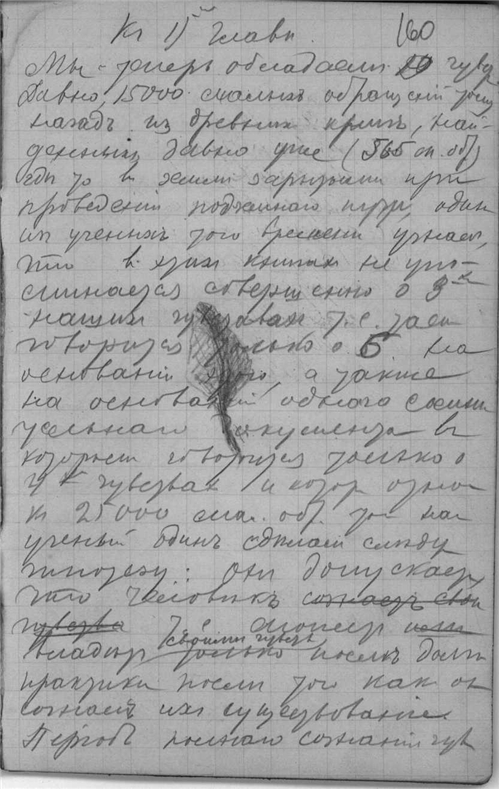 Къ 1й главѣ. 160
Мы теперь обладаемъ 10 чувс
Давно, 15000 малыхъ обращеній
назадъ из древнихъ книгъ, най-
денныхъ давно уже (565 об)
гдѣ то в землѣ зарытыми при
проведеніи подземнаго одинъ
изъ ученыхъ того времени узналъ,
что в этихъ книгахъ не упо-
минается совершенно о 3хъ
нашихъ чувствахъ т.е. тамъ
говорится только о 5. На
основаніи этого, а также
на основаніи одного
документа в
которомъ говорится только о
4хъ чувствахъ и котор
къ 25000 мал. об.
ученый одинъ сдѣлалъ слѣду
гипотезу: онъ допускаетъ
что человѣкъ сознаетъ свои
чувства можетъ
своими чувств
владѣть только послѣ долг
практики послѣ того какъ он
сознаетъ ихъ существованіе.
Періодъ полнаго сознанія чув